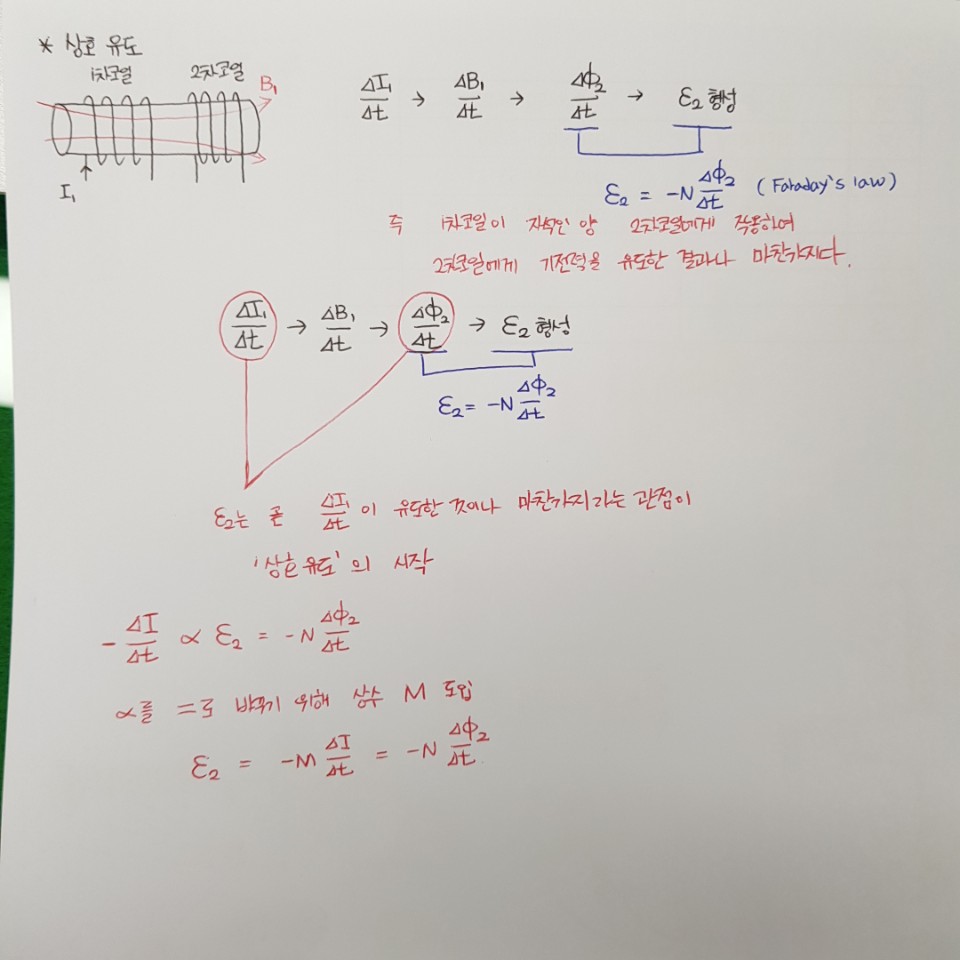 * 상호 유도
1차코일 2차코일
B₁
I₁
ΔI₁/Δt → ΔB₁/Δt → Δϕ₂/Δt → ε₂ 형성
ε₂ = -N Δϕ₂/Δt (Faraday's law)
즉 1차코일이 자석인 양 2차코일에게 작용하여
2차코일에게 기전력을 유도한 결과나 마찬가지다.
ΔI₁/Δt → ΔB₁/Δt → Δϕ₂/Δt → ε₂ 형성
ε₂ = -N Δϕ₂/Δt
ε₂는 곧 ΔI₁/Δt 이 유도한 것이나 마찬가지라는 관점이
'상호유도'의 시작
- ΔI/Δt ∝ ε₂ = -N Δϕ₂/Δt
∝를 =로 바꾸기 위해 상수 M 도입
ε₂ = -M ΔI/Δt = -N Δϕ₂/Δt.